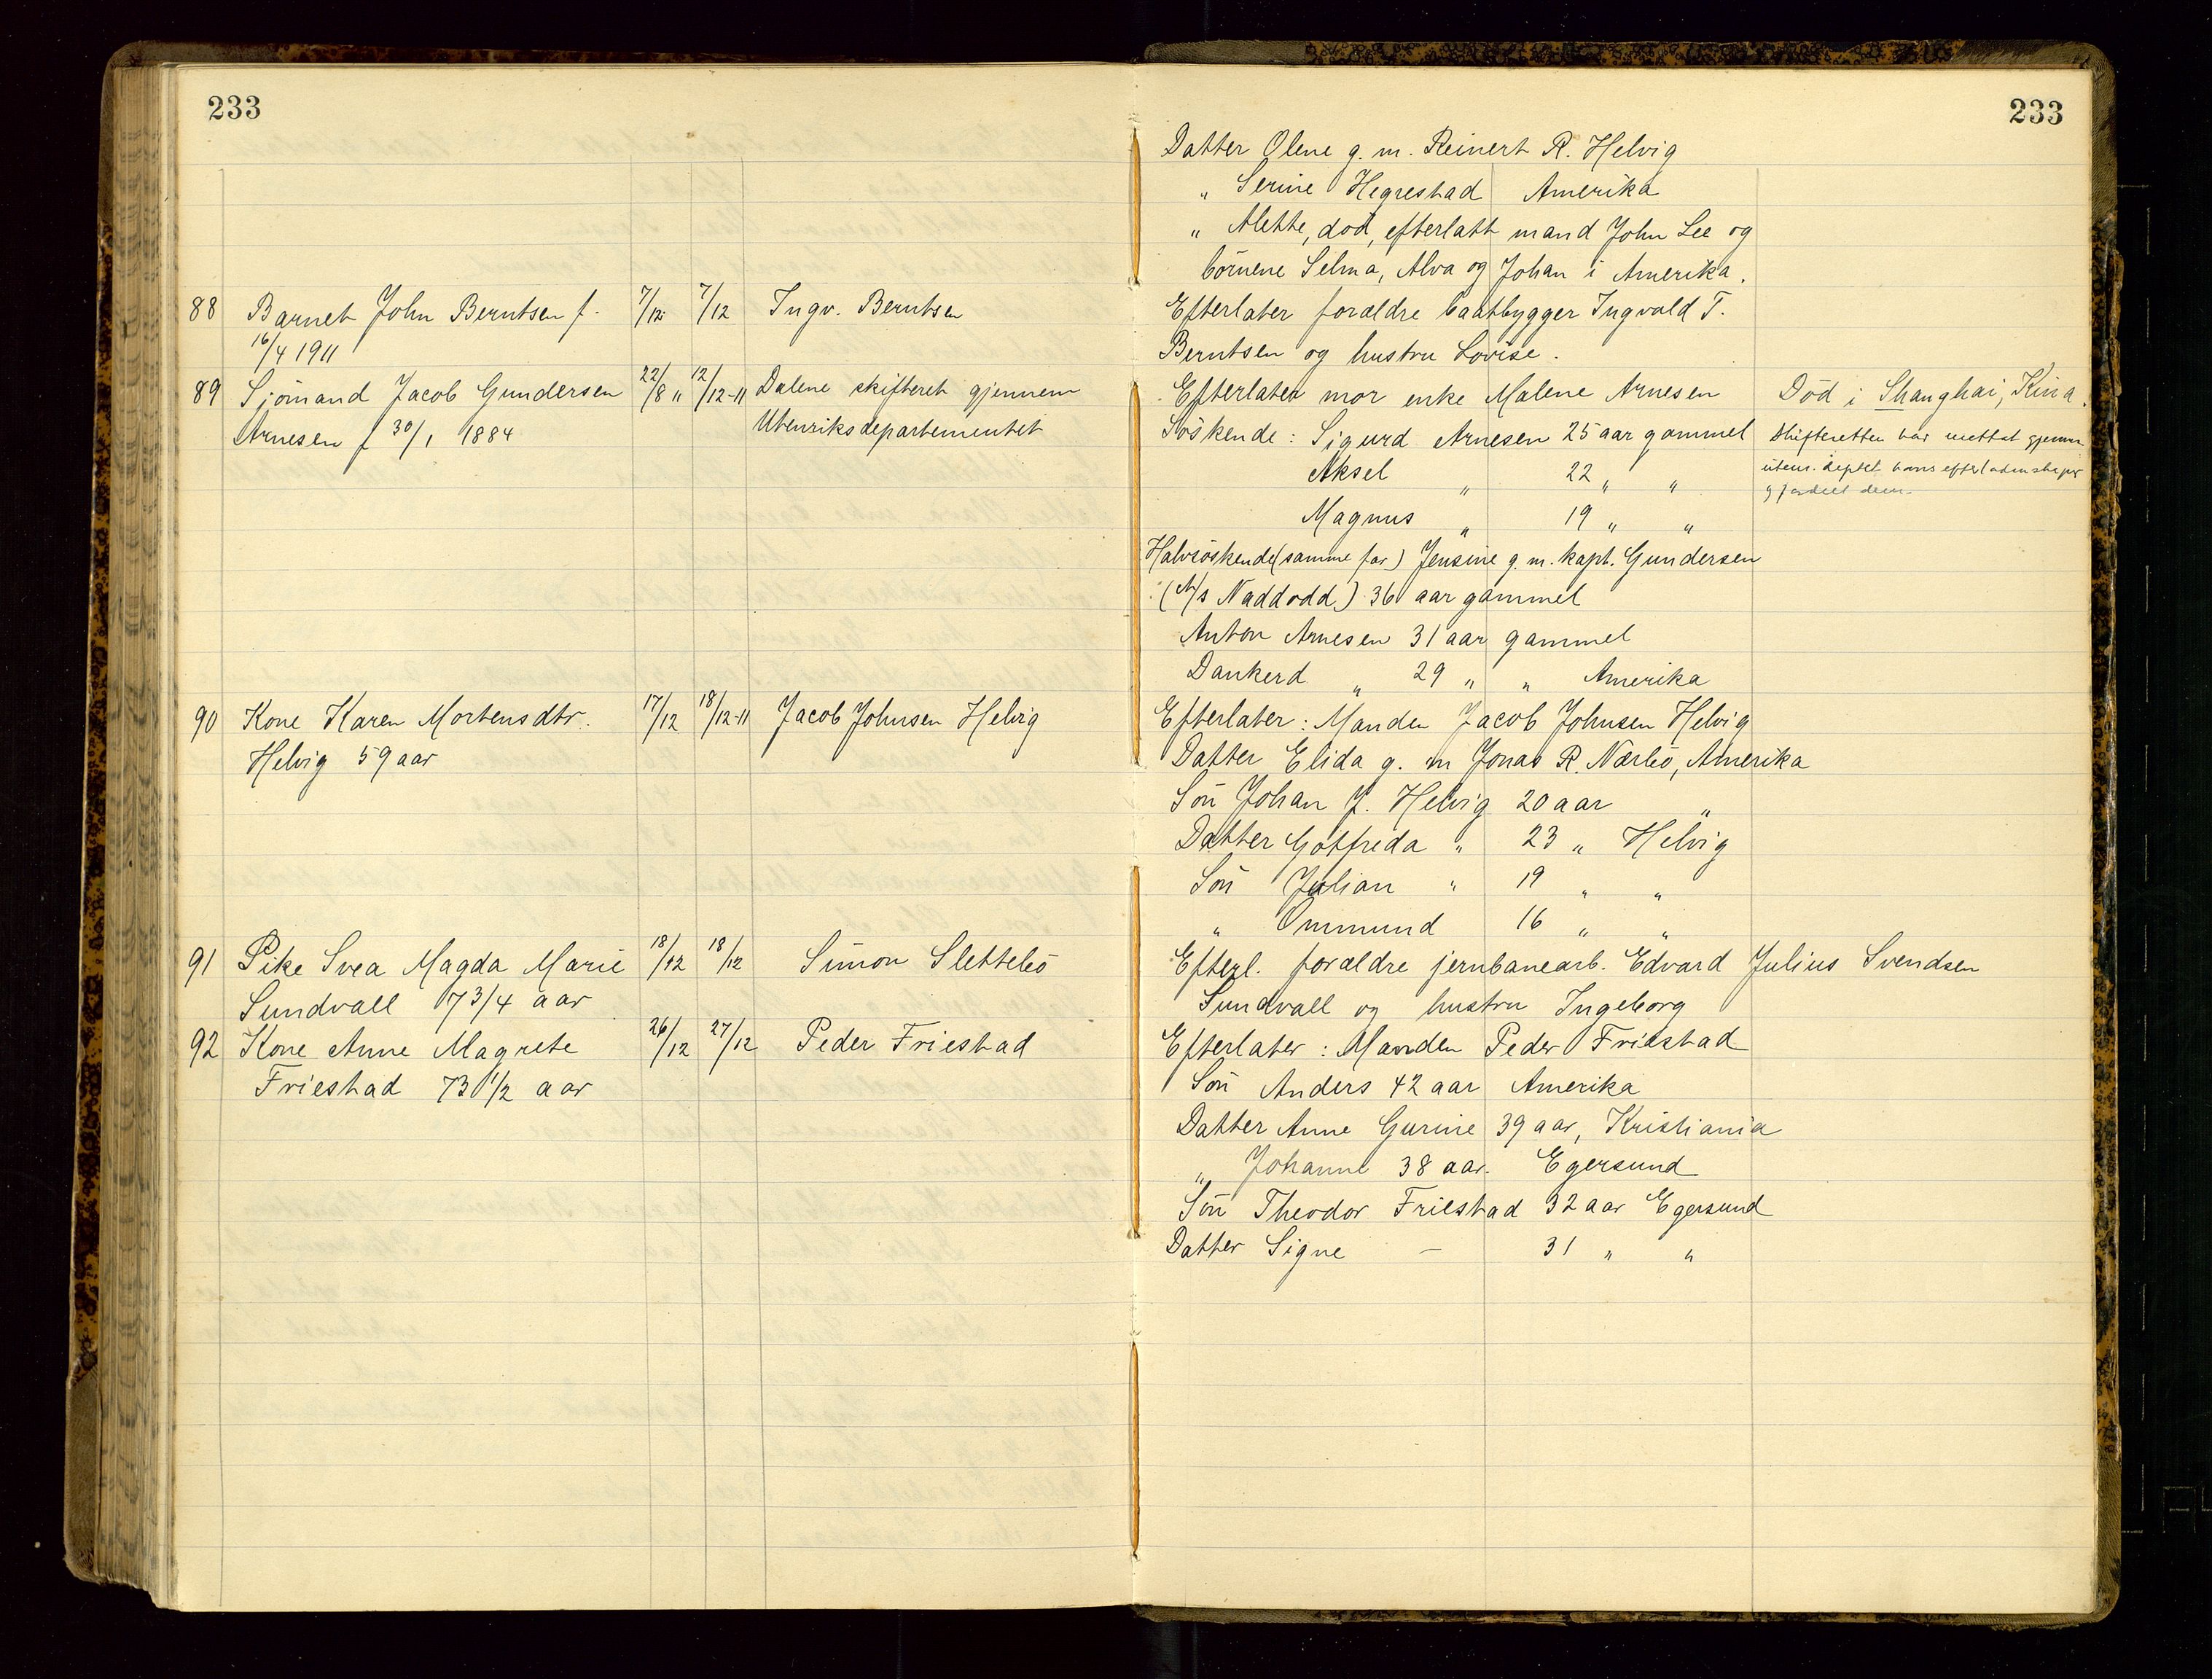 233
88 Barnet John Berntsen f. 7/12 7/12 Ingv. Berntsen
16/4 1911
89 Sjömand Jacob Gundersen 22/8 11 12/12-11 Dalene skifteret gjennem
Arnesen f 30/1 1884 Utenriksdepartementet
90 Kone Karen Mortensdtr. 17/12 18/12-11 Jacob Johnsen Helvig
Helvig 59 aar
91 Pike Svea Magda Marie 18/12 18/12 Simon Slettebö
Sundvall 7 3/4 aar
92 Kone Anne Magrete 26/12 27/12 Peder Friestad
Friestad 73 1/2 aar
233
Datter Olene g. m. Reinert R. Helvig
" Serine Hegrestad Amerika
" Alette, död, efterlatt mand John Lee og
börnene Selma, Alva og Johan i Amerika.
Efterlater forældre baatbygger Ingvald T.
Berntsen og hustru Lovise.
Efterlater mor enke Malene Arnesen Död i Shanghai, Kina.
Söskende: Sigurd Arnesen 25 aar gammel Skifteretten har mottat gjennem
Aksel " 22 " " utenr. deptet hans efterladenskaper
Magnus " 19 " " og fordelt dem.
Halvsöskende (samme far) Jensine g. m. kapt. Gundersen
(A/s Naddodd) 36 aar gammel
Anton Arnesen 31 aar gammel
Dankerd " 29 " " Amerika
Efterlater: Manden Jacob Johnsen Helvig
Datter Elida g. m Jonas R. Nærbö, Amerika
Sön Johan J. Helvig 20 aar "
Datter Gotfreda " 23 " Helvig
Sön Julian " 19 " "
" Ommund 16 " "
Efterl. forældre jernbanearb. Edvard Julius Svendsen
Sundvall og hustru Ingeborg
Efterlater: Manden Peder Friestad
Sön Anders 42 aar Amerika
Datter Anne Gurine 39 aar, Kristiania
" Johanne 38 aar. Egersund
Sön Theodor Friestad 32 aar Egersund
Datter Signe — 31 " "